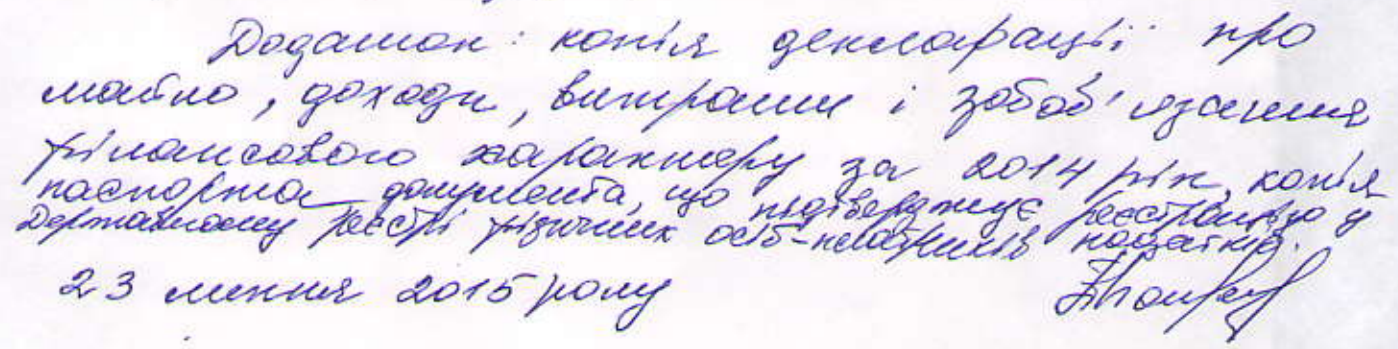 Додаток: копія декларації про
майно, доходи, витрати і зобов'язання
фінансового характеру за 2014 рік, копія
паспорта документа, що підтверджує реєстрацію у
Державному реєстрі фізичних осіб-платників податків.
23 липня 2015 року